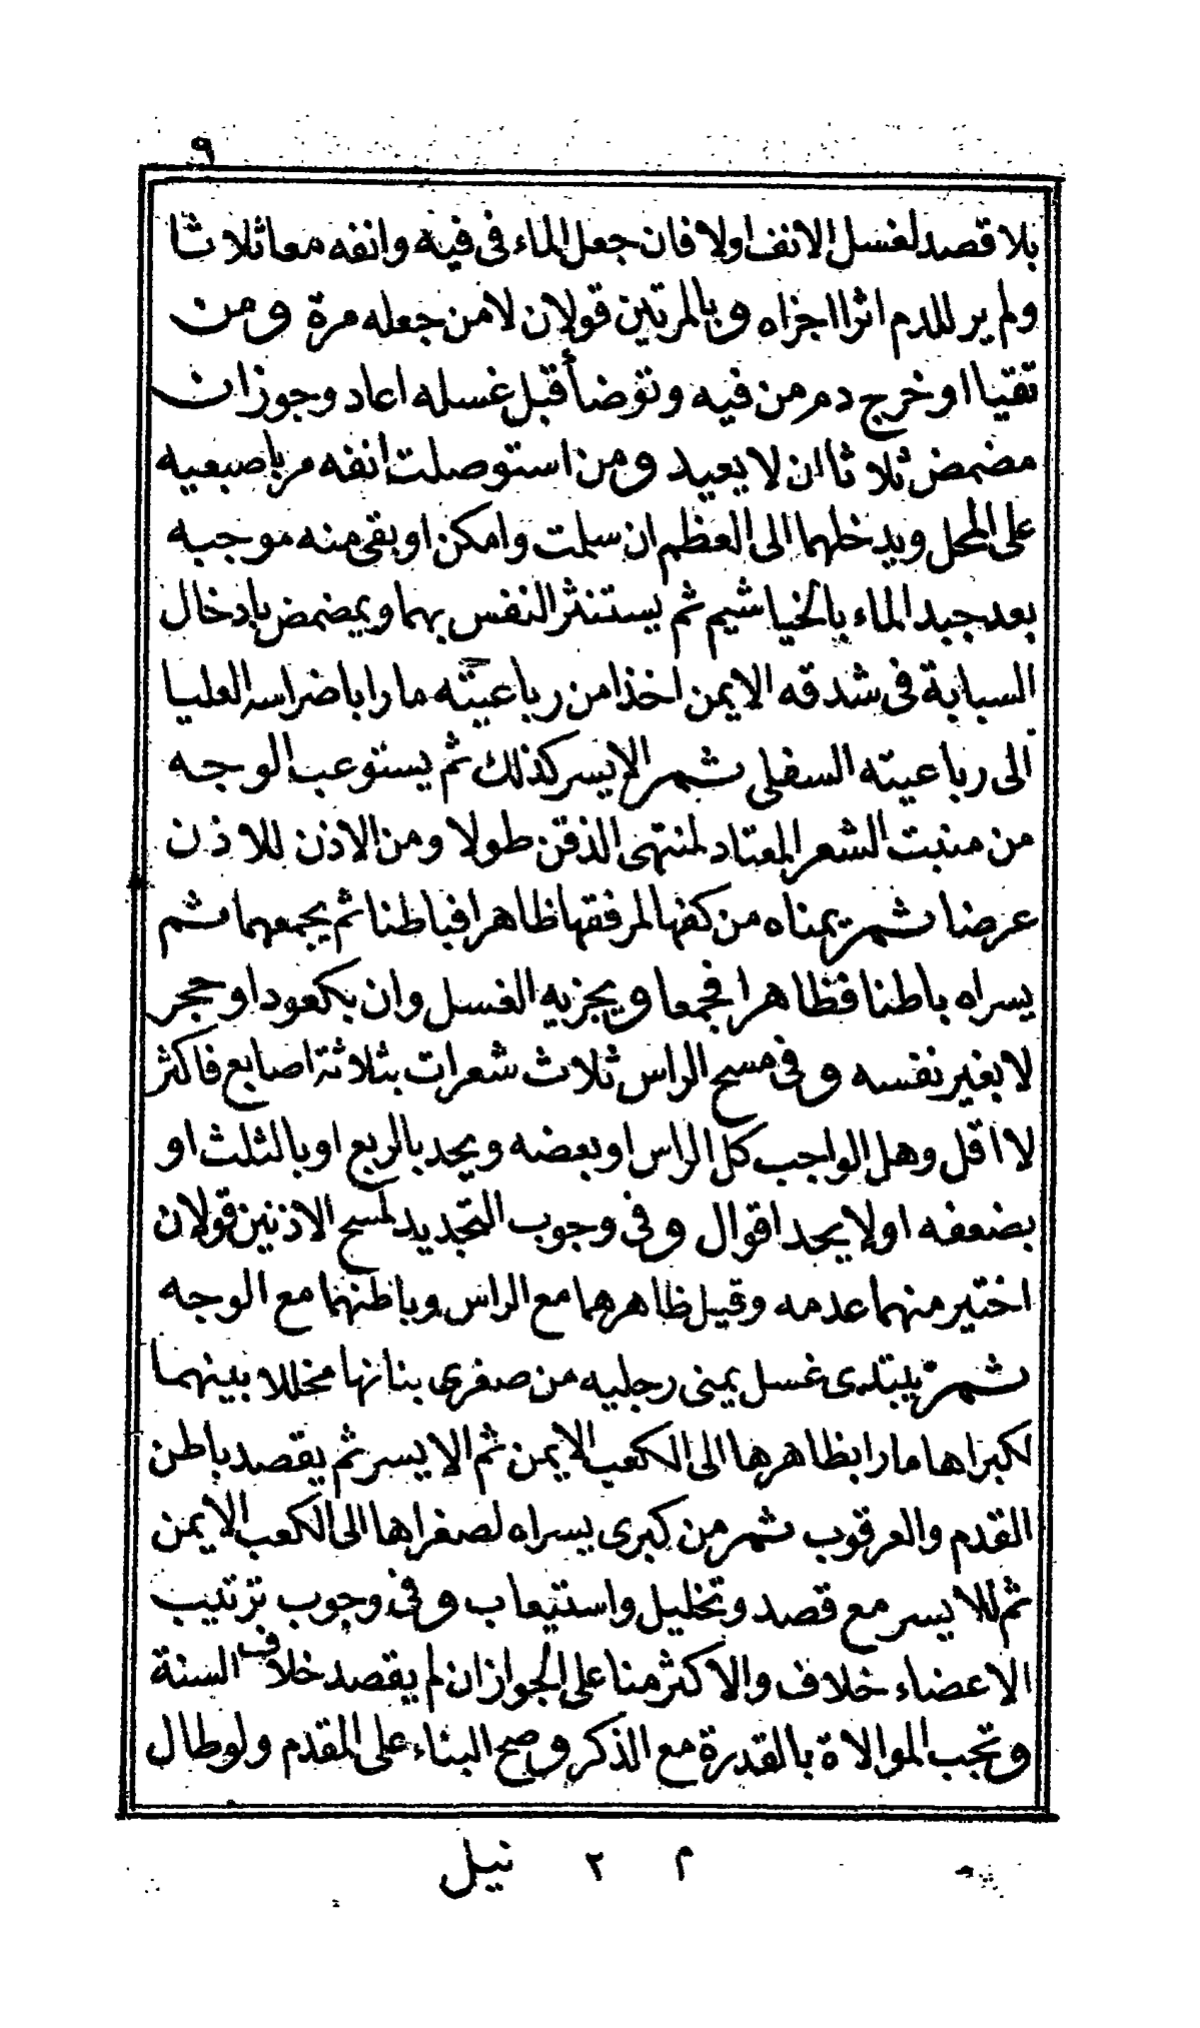 ٩
بلا قصد لغسل الانف اولا فان جعل الماء فى فيه وانفه معا ثلاثا
ولم ير للدم اثرا اجزاه وبالمرتين قولان لا من جعله مرة ومن
تقيا او خرج دم من فيه وتوضأ قبل غسله اعاد وجوز ان
مضمض ثلاثا ان لا يعيد ومن استوصلت انفه مر باصبعيه
على المحل ويدخلهما الى العظم ان سلمت وامكن او بقى منه موجبه
بعد جبد الماء بالخياشيم ثم يستنثر النفس بهما ويمضمض بادخال
السبابة فى شدقه الايمن اخذا من رباعيته مارا باضراسه العليا
الى رباعيته السفلى ثم الايسر كذلك ثم يستوعب الوجه
من منبت الشعر المعتاد لمنتهى الذقن طولا ومن الاذن للاذن
عرضا ثم يمناه من كفها لمرفقها ظاهرا فباطنا ثم يجمعهما ثم
يسراه باطنا فظاهرا فجمعا ويجزيه الغسل وان بكعود او حجر
لا بغير نفسه وفى مسح الراس ثلاث شعرات بثلاثة اصابع فاكثر
لا اقل وهل الواجب كل الراس او بعضه ويحد بالربع او بالثلث او
بضعفه اولا يحد اقوال وفى وجوب التجديد لمسح الاذنين قولان
اختير منهما عدمه وقيل ظاهرهما مع الراس وباطنهما مع الوجه
ثم يبتدى غسل يمنى رجليه من صغرى بنانها مخللا بينهما
لكبراها مارا بظاهرها الى الكعب الايمن ثم الايسر ثم يقصد باطن
القدم والعرقوب ثم من كبرى يسراه لصغراها الى الكعب الايمن
ثم للايسر مع قصد وتخليل واستيعاب وفى وجوب ترتيب
الاعضاء خلاف والاكثر منا على الجواز ان لم يقصد خلاف السنة
وتجب الموالاة بالقدرة مع الذكر وصح البناء على المقدم ولو طال
م ٢ نيل